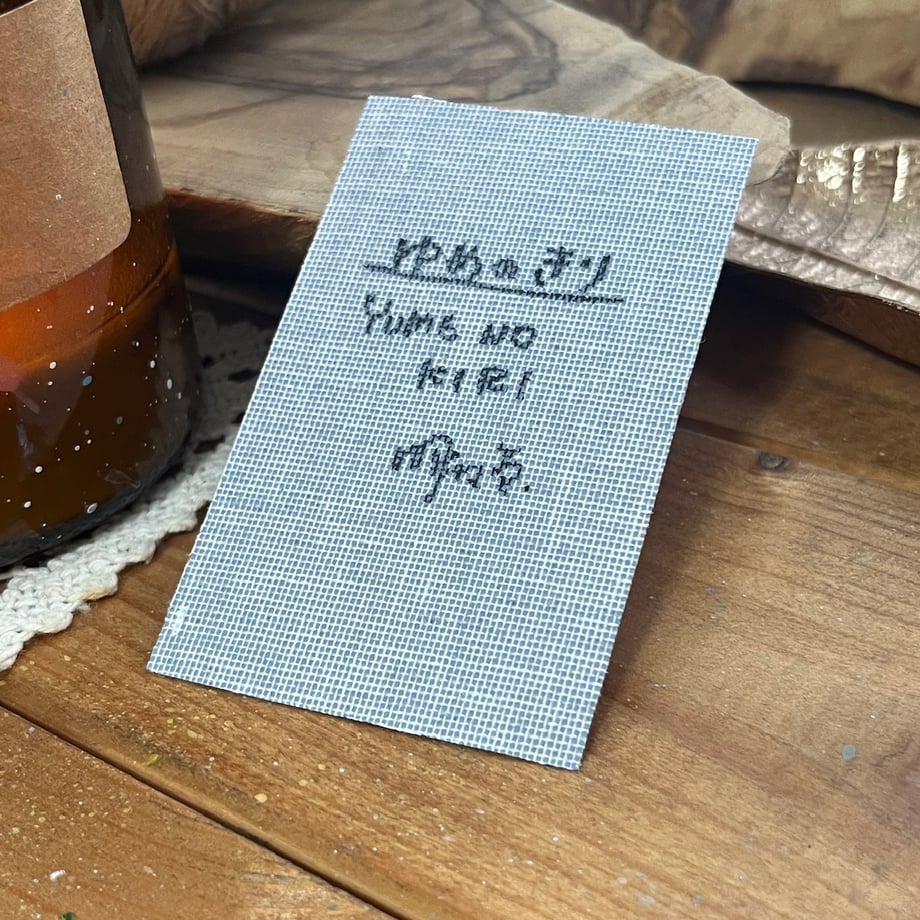 ゆめのきり
YUME NO
KIRI